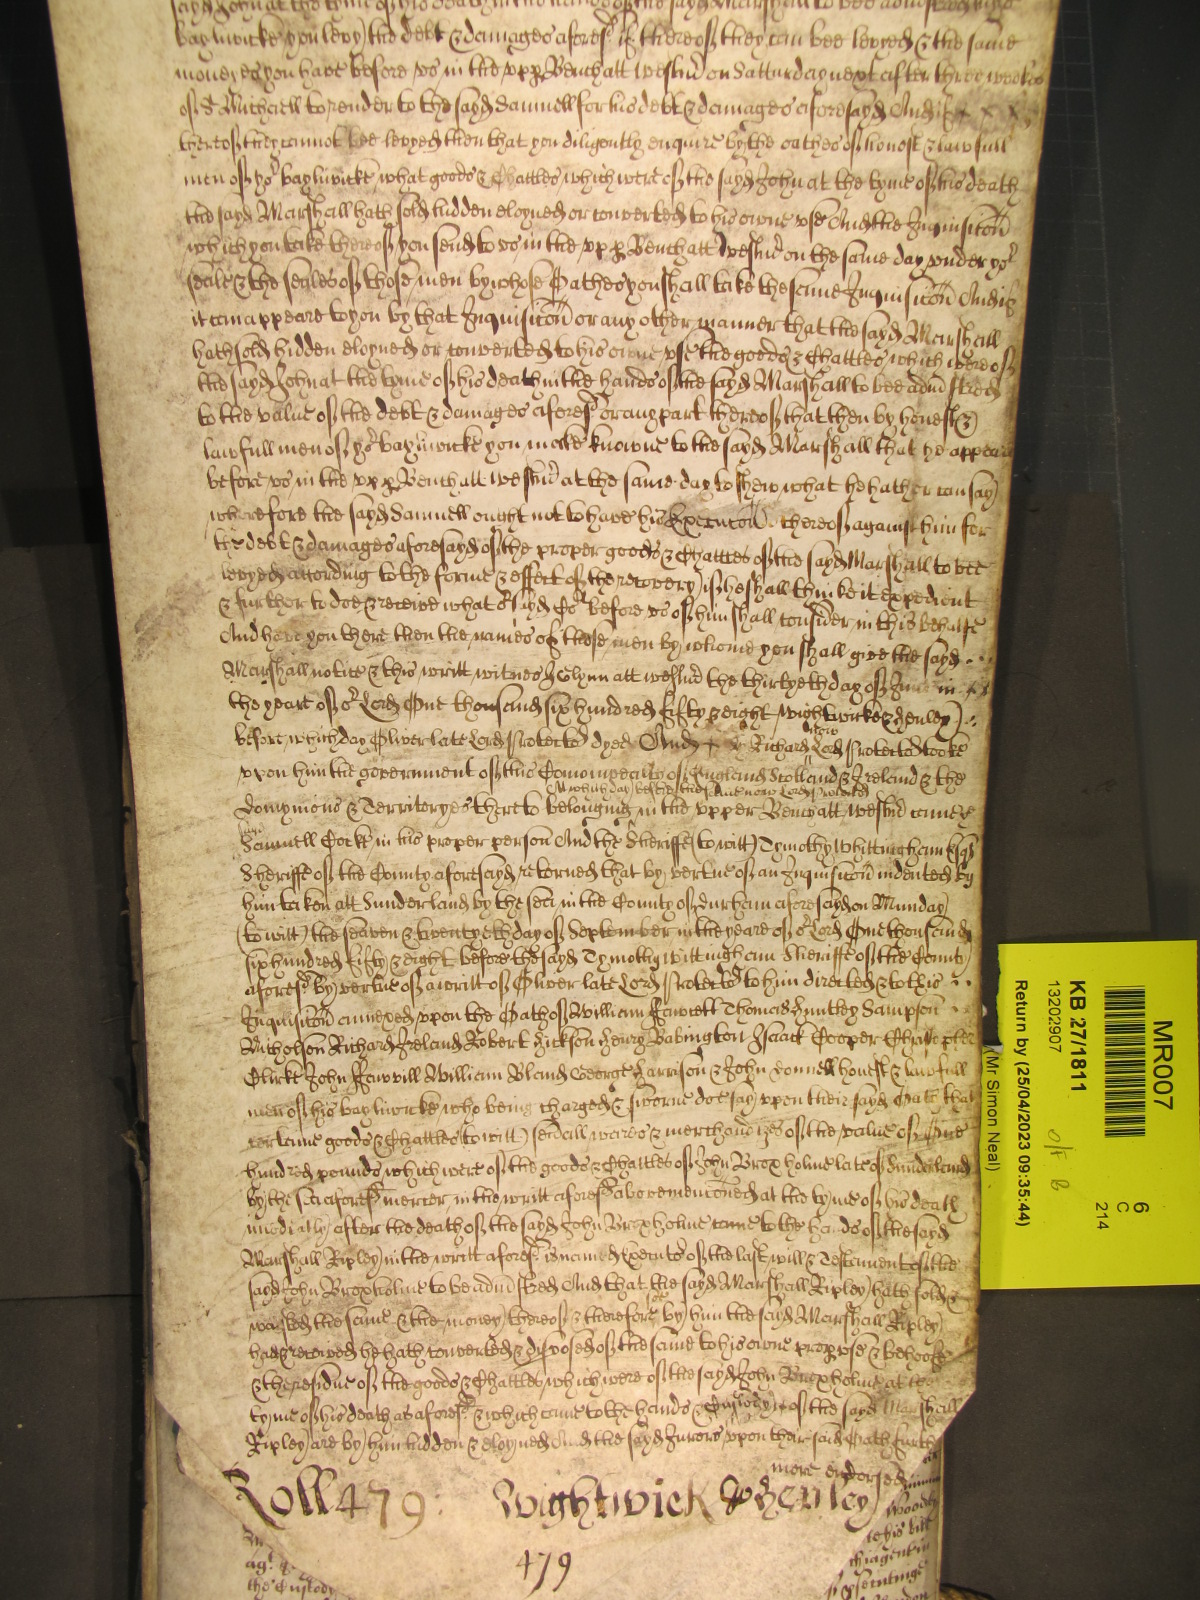 sayd John at the tyme of his death in the hands of the sayd Marshall to bee
baylywicke you levy the debt & damages afores'd if thereof they can bee levyed & the same
moneyes you have before us in the upp Bench att Westm' on Satturday next after three weekes
of S' Michaell to render to the sayd Samuell for his debt & damages aforesayd And if
thereof they cannot bee levyed then that you diligently enquire by the oathes of honest & lawfull
men of yo'r baylywicke what goods & Chattles which were of the sayd John at the tyme of his death
the sayd Marshall hath sold hidden eloyned or converted to his owne use And the Inquisicon
which you take thereof you send to us in the upp Bench att Westm' on the same day under yo'r
seale & the seales of those men by whose Oathes you shall take the same Inquisicon And if
it can appeare to you by that Inquisicon or any other manner that the sayd Marshall
hath sold hidden eloyned or converted to his owne use the goods & Chattles which were of
the sayd John at the tyme of his death in the hands of the sayd Marshall to bee adm'stred
to the value of the debt & damages afores'd or any part thereof that then by honest &
lawfull men of yo'r baylywicke you make knowne to the sayd Marshall that he appeare
before us in the upp Bench att Westm' at the same day to shew what he hath or can say
wherefore the sayd Samuell ought not to have his Execucon thereof against him for
the debt & damages aforesayd of the proper goods & Chattles of the sayd Marshall to bee
levyed according to the forme & effect of the recovery if he shall thinke it expedient
& further to doe & receive what o'r sayd Co't before us of him shall consider in this behalfe
And have you there then the names of those men by whome you shall give the sayd
Marshall notice & this writt witnes J Glynn att Westm' the thirtyeth day of June in
the yeare of o'r Lord One thousand six hundred fifty & eight Wightwicke & Henley
before which day Oliver late Lord Protector dyed And Richard now Lord Protector tooke
upon him the government of this Comonwealth of England Scotland & Ireland & the
Dominions & Territoryes thereto belonging
At which day before the same now Lord Protector
in the upper Bench att Westm' came
Samuell Cocke in his proper person And the Sheriffe (to witt) Tymothy Whittingham Esq
Sheriffe of the County aforesayd retorned that by vertue of an Inquisicon indented by
him taken att Sunderland by the sea in the County of Durham aforesayd on Munday
(to witt) the seaven & twentyeth day of September in the yeare of o'r Lord One thousand
six hundred fifty & eight before the sayd Tymothy Wittingham Sheriffe of the County
afores'd by vertue of a writt of Oliver late Lord Protector to him directed & to this
Inquisicon annexed upon the Oath of William Fawcett Thomas Huntley Sampson
Nicholson Richard Ireland Robert Hickson Henry Babington Isaack Cooper Christopher
Clirke John William Bland George Harrison & John honest & lawfull
men of his baylywicke who being charged & sworne doe say upon their sayd Oath that
certaine goods & Chattles (to witt) severall wares & merchandizes of the value of One
hundred pounds which were of the goods & Chattles of John Broxholme late of Sunderland
by the Sea afores'd mercer in the writt afores'd abovemenconed at the tyme of his death
imediatly after the death of the sayd John Broxholme came to the hands of the sayd
Marshall Ripley in the writt afores'd named Executor of the last will & Testament of the
sayd John Broxholme to be adm'stred And that the sayd Marshall Ripley hath sold &
wasted the same & the money thereof & therefore by him the sayd Marshall Ripley
had & received he hath converted & disposed of the same to his owne prop use & behoofe
& the residue of the goods & Chattles which were of the sayd John Broxholme at the
tyme of his death as afores'd & which came to the hands & custody of the sayd Marshall
Ripley are by him hidden & eloyned And the sayd Jurors upon their said Oath further
more endorsed
Roll 479. Wightwick & Henley
479
the Custody
to his
MR007
KB 27/1811
13202907
Return by (25/04/2023 09:35:44)
(Mr Simon Neal)
6
C
214